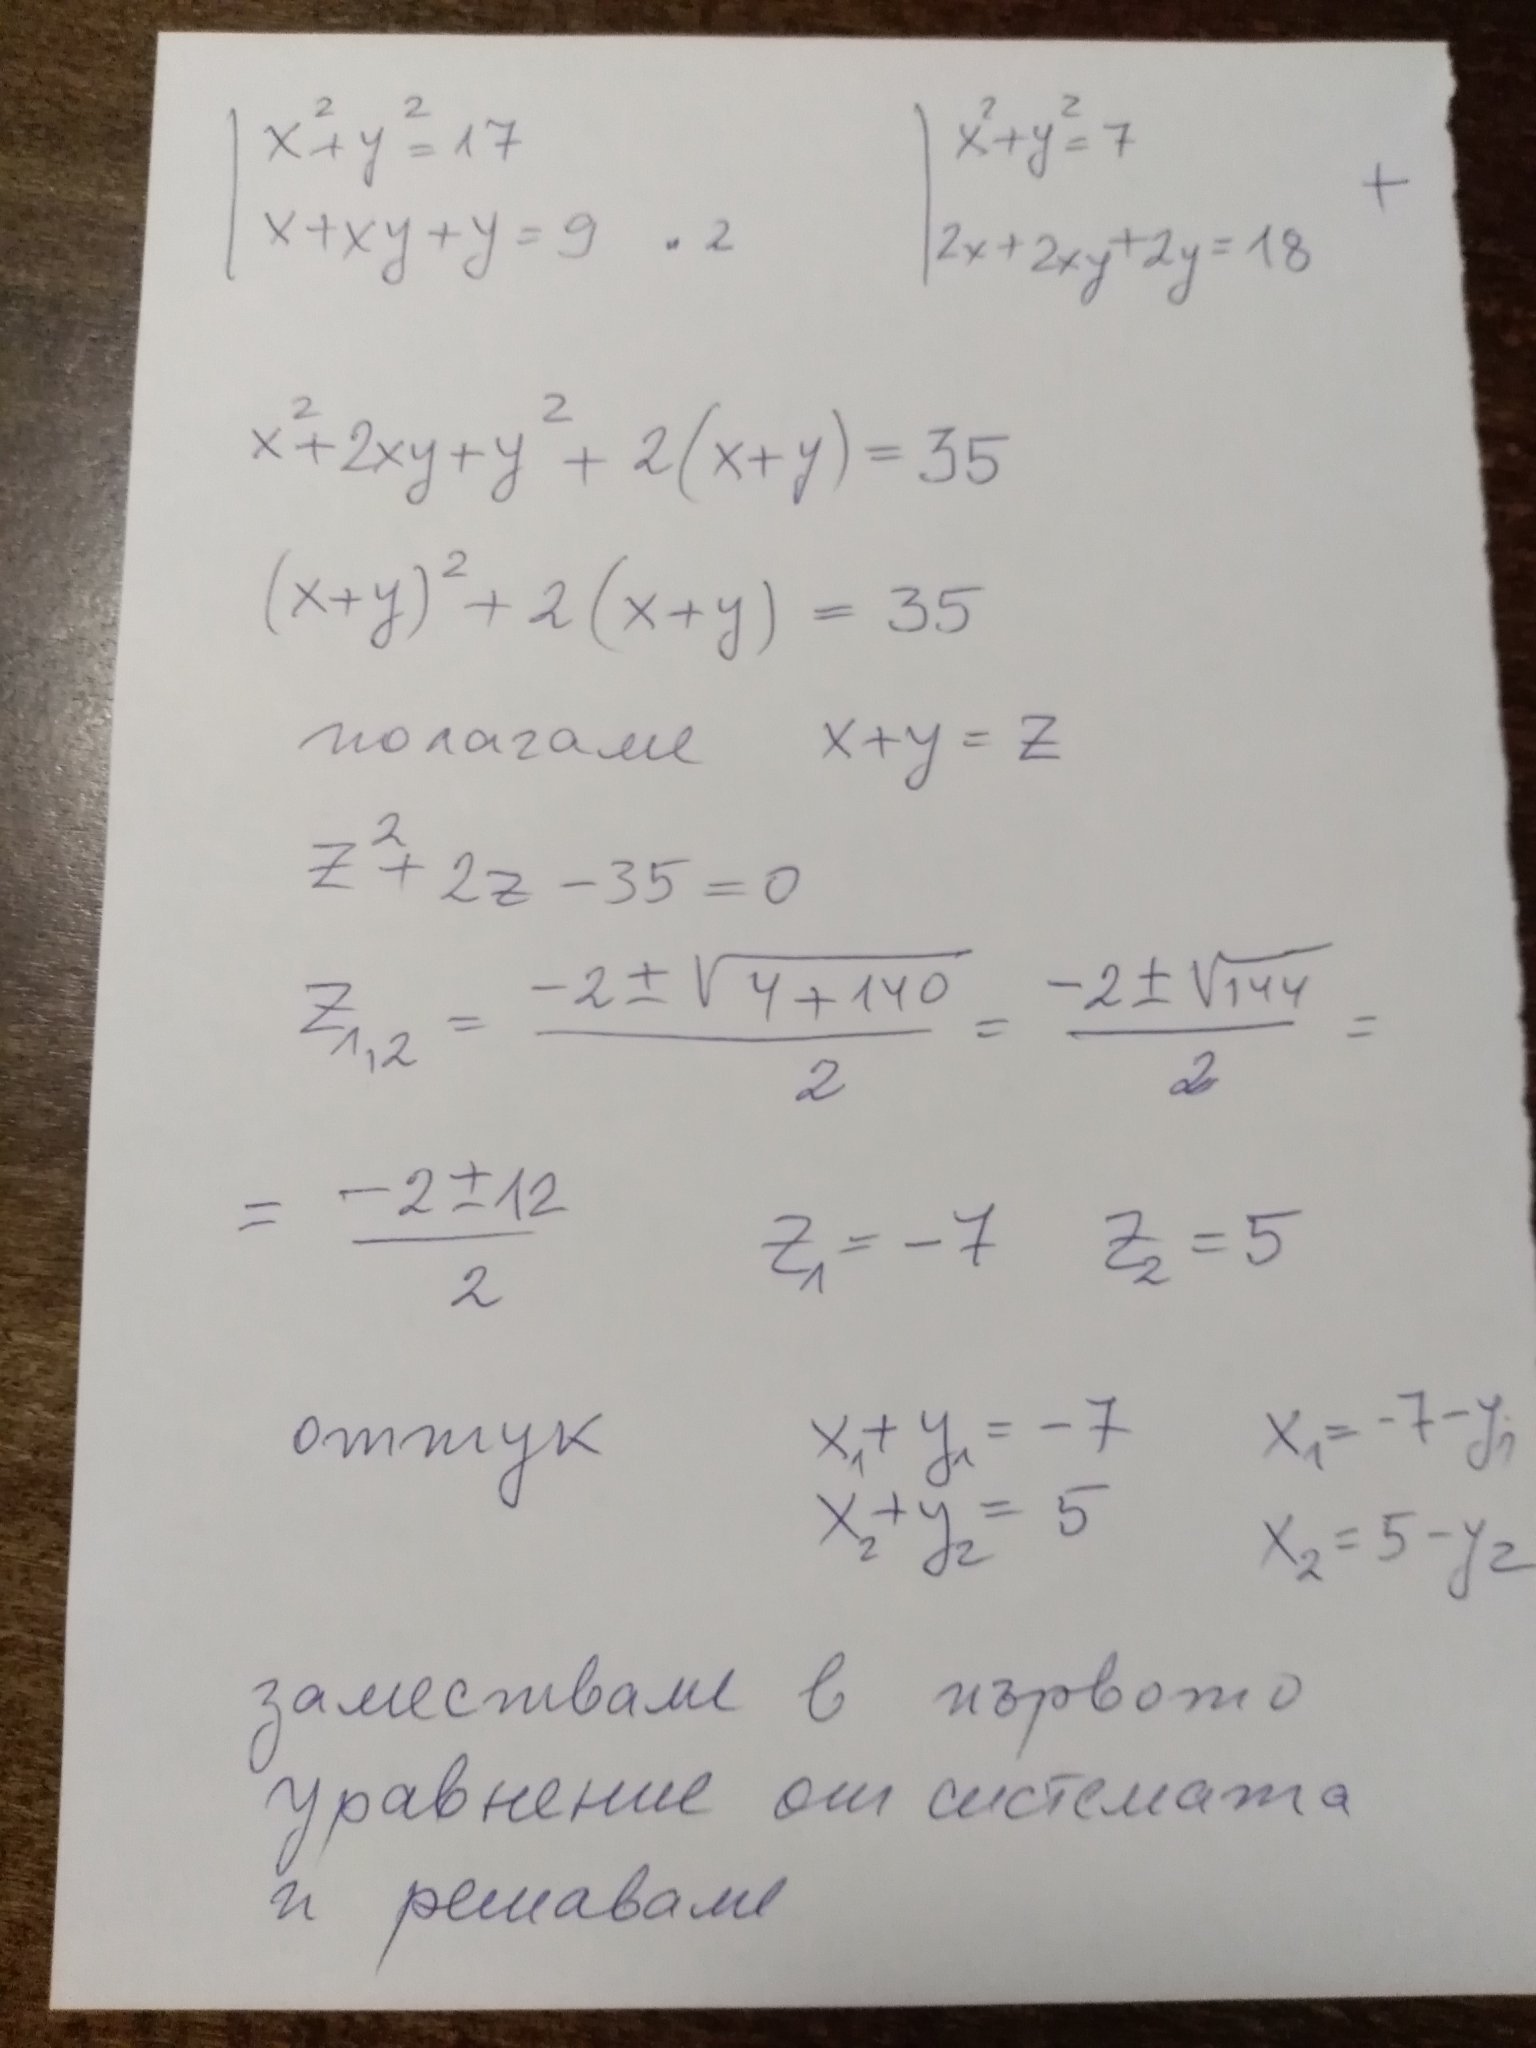 x²+y²=17
x+xy+y=9 . 2
x²+y²=7
2x+2xy+2y=18
+
x²+2xy+y²+2(x+y)=35
(x+y)²+2(x+y)=35
полагаме x+y=z
z²+2z-35=0
z₁,₂ = (-2±√(4+140))/2 = (-2±√144)/2 =
= (-2±12)/2 z₁=-7 z₂=5
оттук x₁+y₁=-7 x₁=-7-y₁
x₂+y₂=5 x₂=5-y₂
заместваме в първото
уравнение от системата
и решаваме